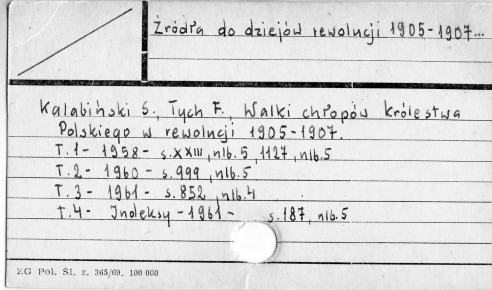 Źródła do dziejów rewolucji 1905-1907...
Kalabiński S., Tych F., Walki chłopów Królestwa
Polskiego w rewolucji 1905-1907.
T.1- 1958- s.XXIII, nlb. 5, 1127, nlb.5
T.2- 1960- s.999, nlb.5
T.3- 1961- s.852, nlb.4
T.4- Indeksy-1961- s.187, nlb.5
ZG Pol. Śl. z. 365/69. 100 000